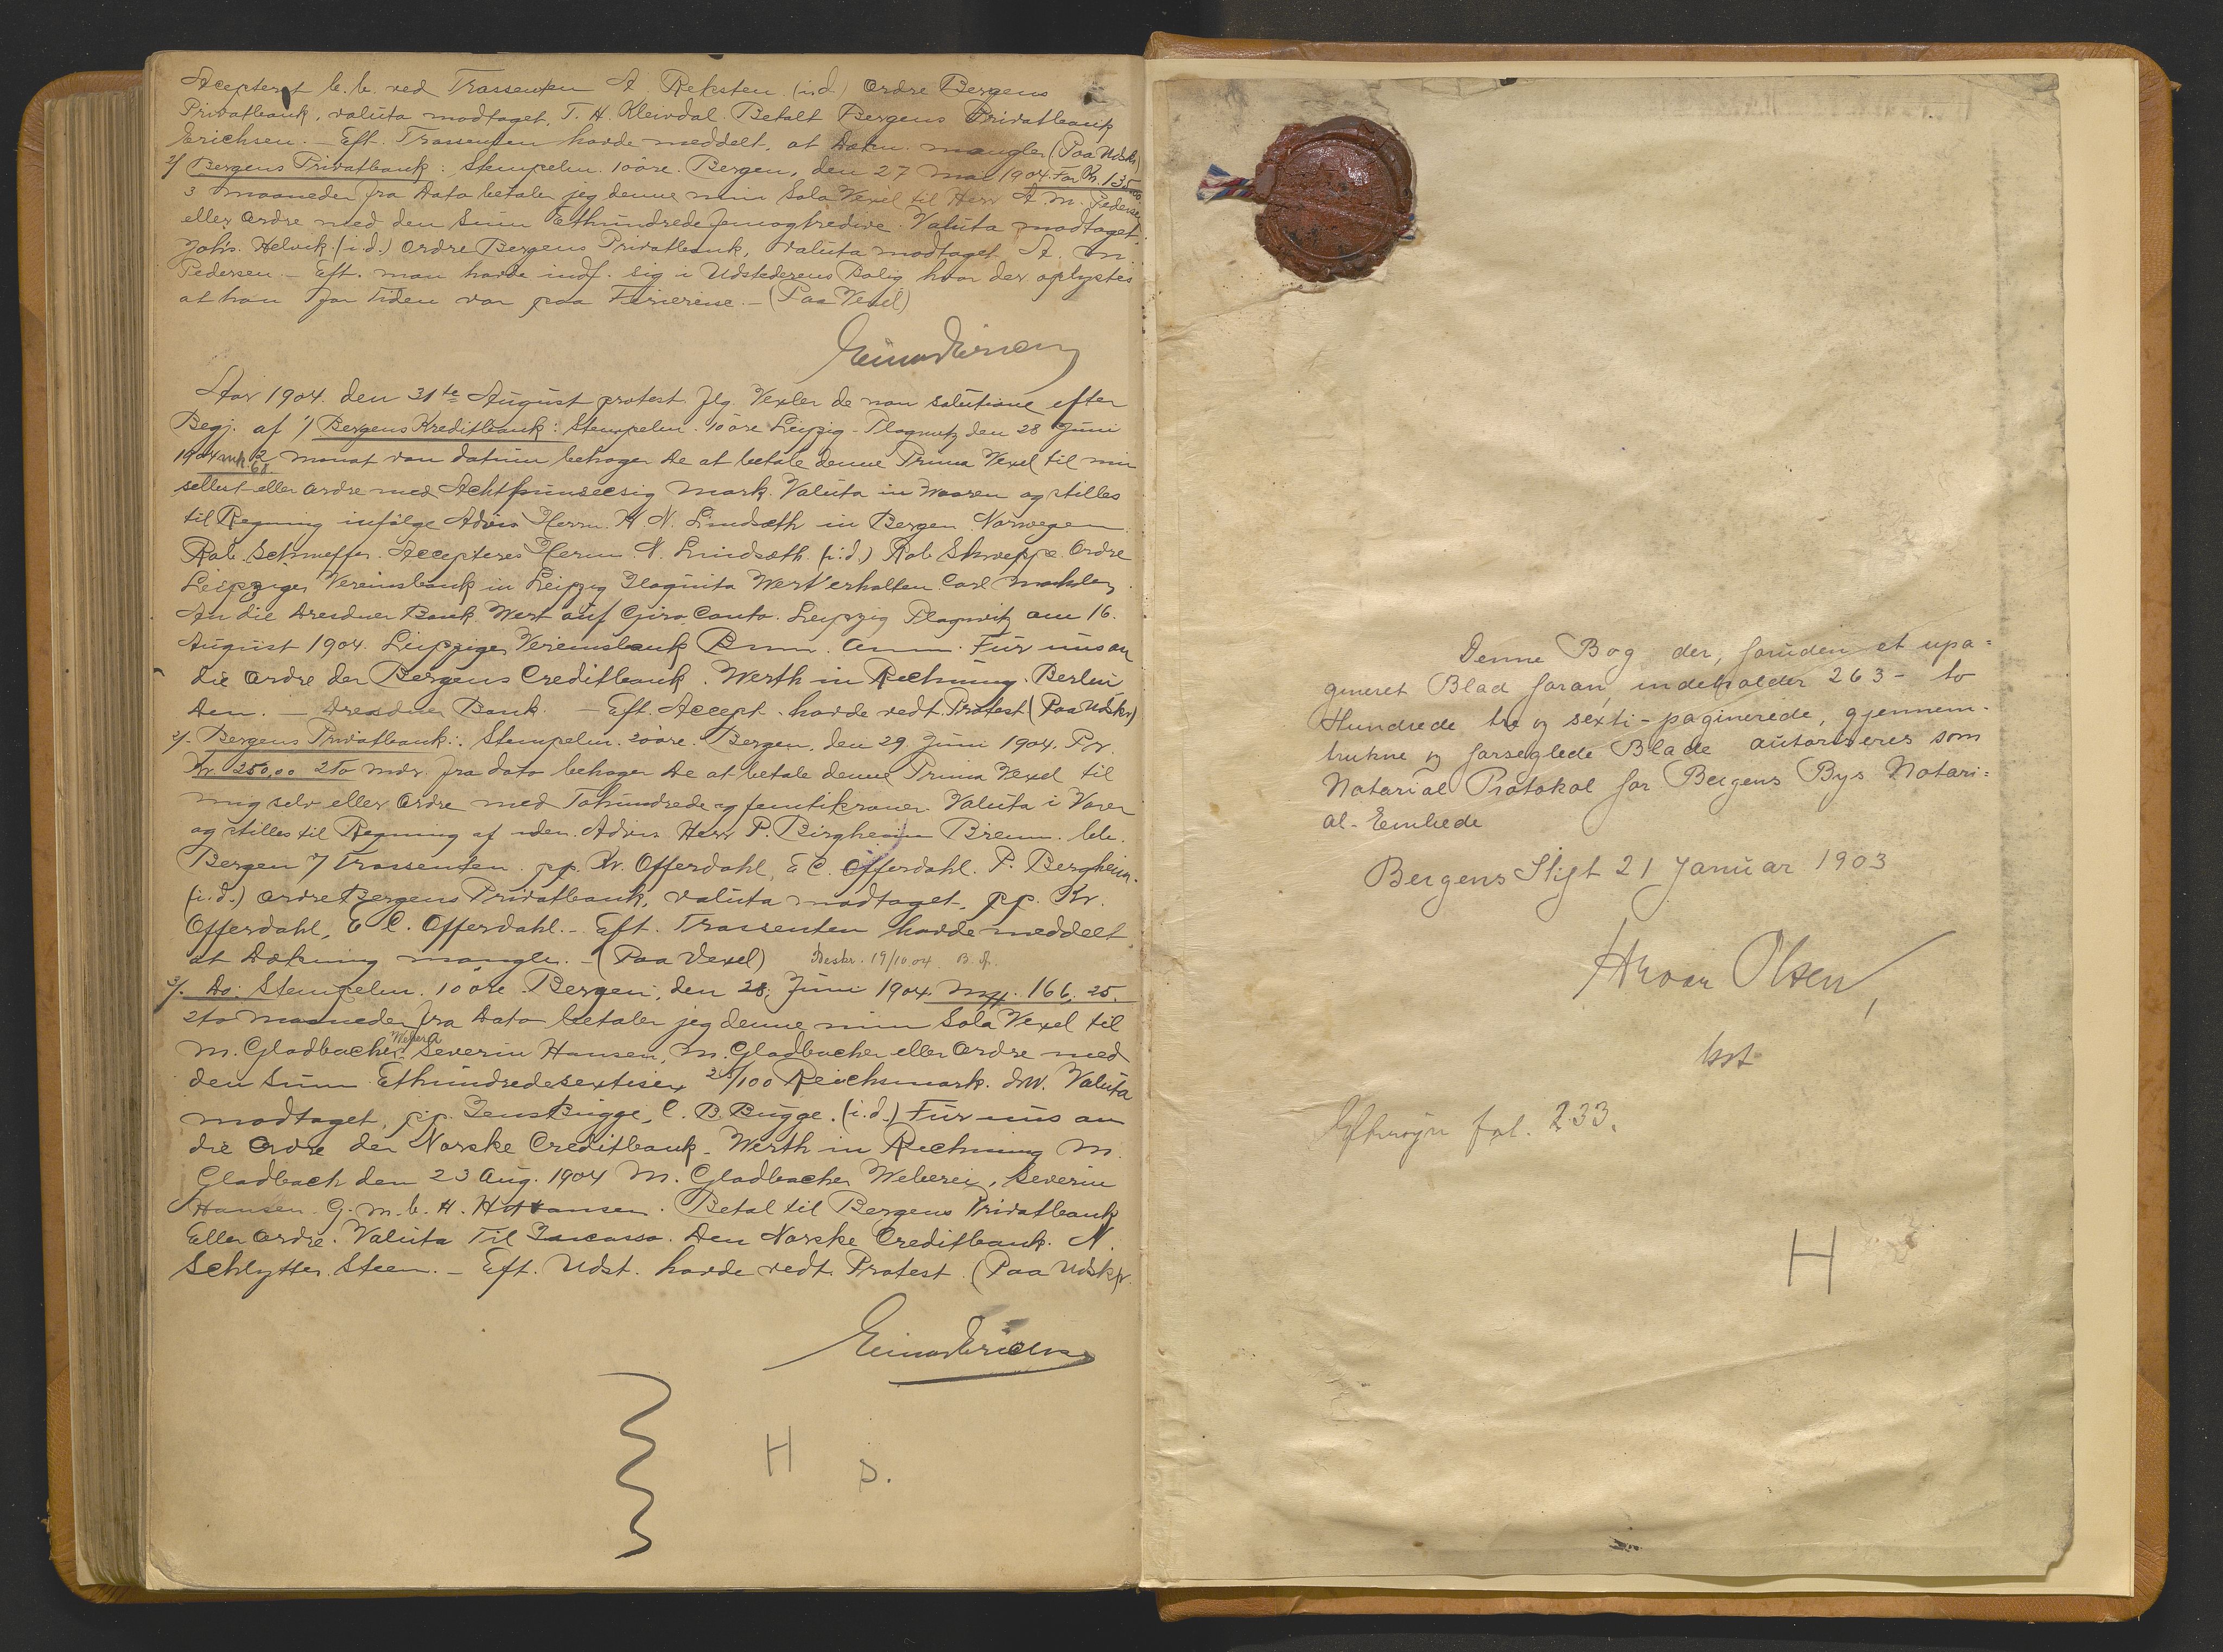 Accepteret b. b. ved Trassenten A. Reksten (i.d.) Ordre Bergens
Privatbank, valuta modtaget, T. H. Kleivdal. Betalt Bergens Privatbank
Erichsen. - Eft. Trassenten havde meddelt, at Dækn. mangler (Paa Udskr)
2/ Bergens Privatbank: Stempelm. 10 øre. Bergen, den 27 Mai 1904. For Kr. 135.00
3 maaneder fra Dato betaler jeg denne min Sola Vexel til Herr A. M. Pedersen
eller Ordre med den Sum Ethundredefemogtredive. Valuta modtaget.
Johs. Helvik. (i.d.) Ordre Bergens Privatbank, valuta modtaget A. M.
Pedersen. - Eft. man havde indf. sig i Udstederens Bolig hvor der oplystes
at han for Tiden var paa Feriereise. - (Paa Vexel)
Einar Erichsen
Aar 1904. den 31te August protest. flg. Vexler de non solutione efter
Begj. af 1/ Bergens Kreditbank: Stempelm. 10 øre Leipzig-Plagwitz den 28 Juni
1904 mk. 68. 2 monat von datum behager De at betale denne Prima Vexel til min
selbst eller Ordre med Achtundsecsig Mark. Valuta in Waaren og stilles
til Regning ifølge Advis Herrn. H. N. Lindsæth in Bergen Norwegen
Rob. Accepteres Herrn N. Lindsæth. (i.d.) Rob. Ordre
Leipziger Vereinsbank in Leipzig Plagwitz Wert erhalten. Carl
An die Dresdner Bank Wert auf Giro Conto. Leipzig Plagwitz am 16.
August 1904. Leipziger Vereinsbank Für uns an
die Ordre der Bergens Creditbank. Werth in Rechnung. Berlin
Den. - Dresdner Bank. - Eft. Accept. havde vedt. Protest (Paa Udskr)
2/. Bergens Privatbank: Stempelm. 20 øre. Bergen, den 29 Juni 1904. Pr.
Kr. 250,00 2 To mdr. fra dato behager De at betale denne Prima Vexel til
mig selv eller Ordre med Tohundrede og femtikroner. Valuta i Varer
og stilles til Regning af uden Advis Herr P. Birgheim
Bergen 7/ Trassenten. pp. Kr. Offerdahl, E C. Offerdahl. P. Bergheim.
(i.d.) Ordre Bergens Privatbank, valuta modtaget, pp. Kr.
Offerdahl, E C. Offerdahl. - Eft. Trassenten havde meddelt
at Dækning mangler. - (Paa Vexel) Beskr. 19/10.04.
3/. Do: Stempelm. 10 øre Bergen, den 28. Juni 1904. Mk. 166. 25.
2 to maaneder fra Dato betaler jeg denne min Sola Vexel til
M. Gladbacher Weberei Severin Hansen, M. Gladbacher eller Ordre med
den Sum Ethundredesextisex 25/100 Reichsmark. d.W. Valuta
modtaget, pp. Jens Bugge, C. B. Bugge. (i.d.) Für uns an
die Ordre der Norske Creditbank. Werth in Rechnung M.
Gladbach den 23 Aug. 1904 M. Gladbacher Weberei, Severin
Hansen. G. m. b. H. Betal til Bergens Privatbank
Eller Ordre. Valuta Til Incasso. Den Norske Creditbank. N.
Schlytter. Steen. - Eft. Udst. havde vedt. Protest. (Paa Udskr.
Einar Erichsen
H
Denne Bog der, foruden et upa=
gineret Blad foran, indeholder 263 - to
Hundrede tre og sexti - paginerede, gjennem-
trukne og forseglede Blade autoriseres som
Notarial Protokol for Bergens Bys Notari=
al-Embede
Bergens Stift 21 Januar 1903
Hroar Olsen,
kst
Eftersyn fol. 233.
H